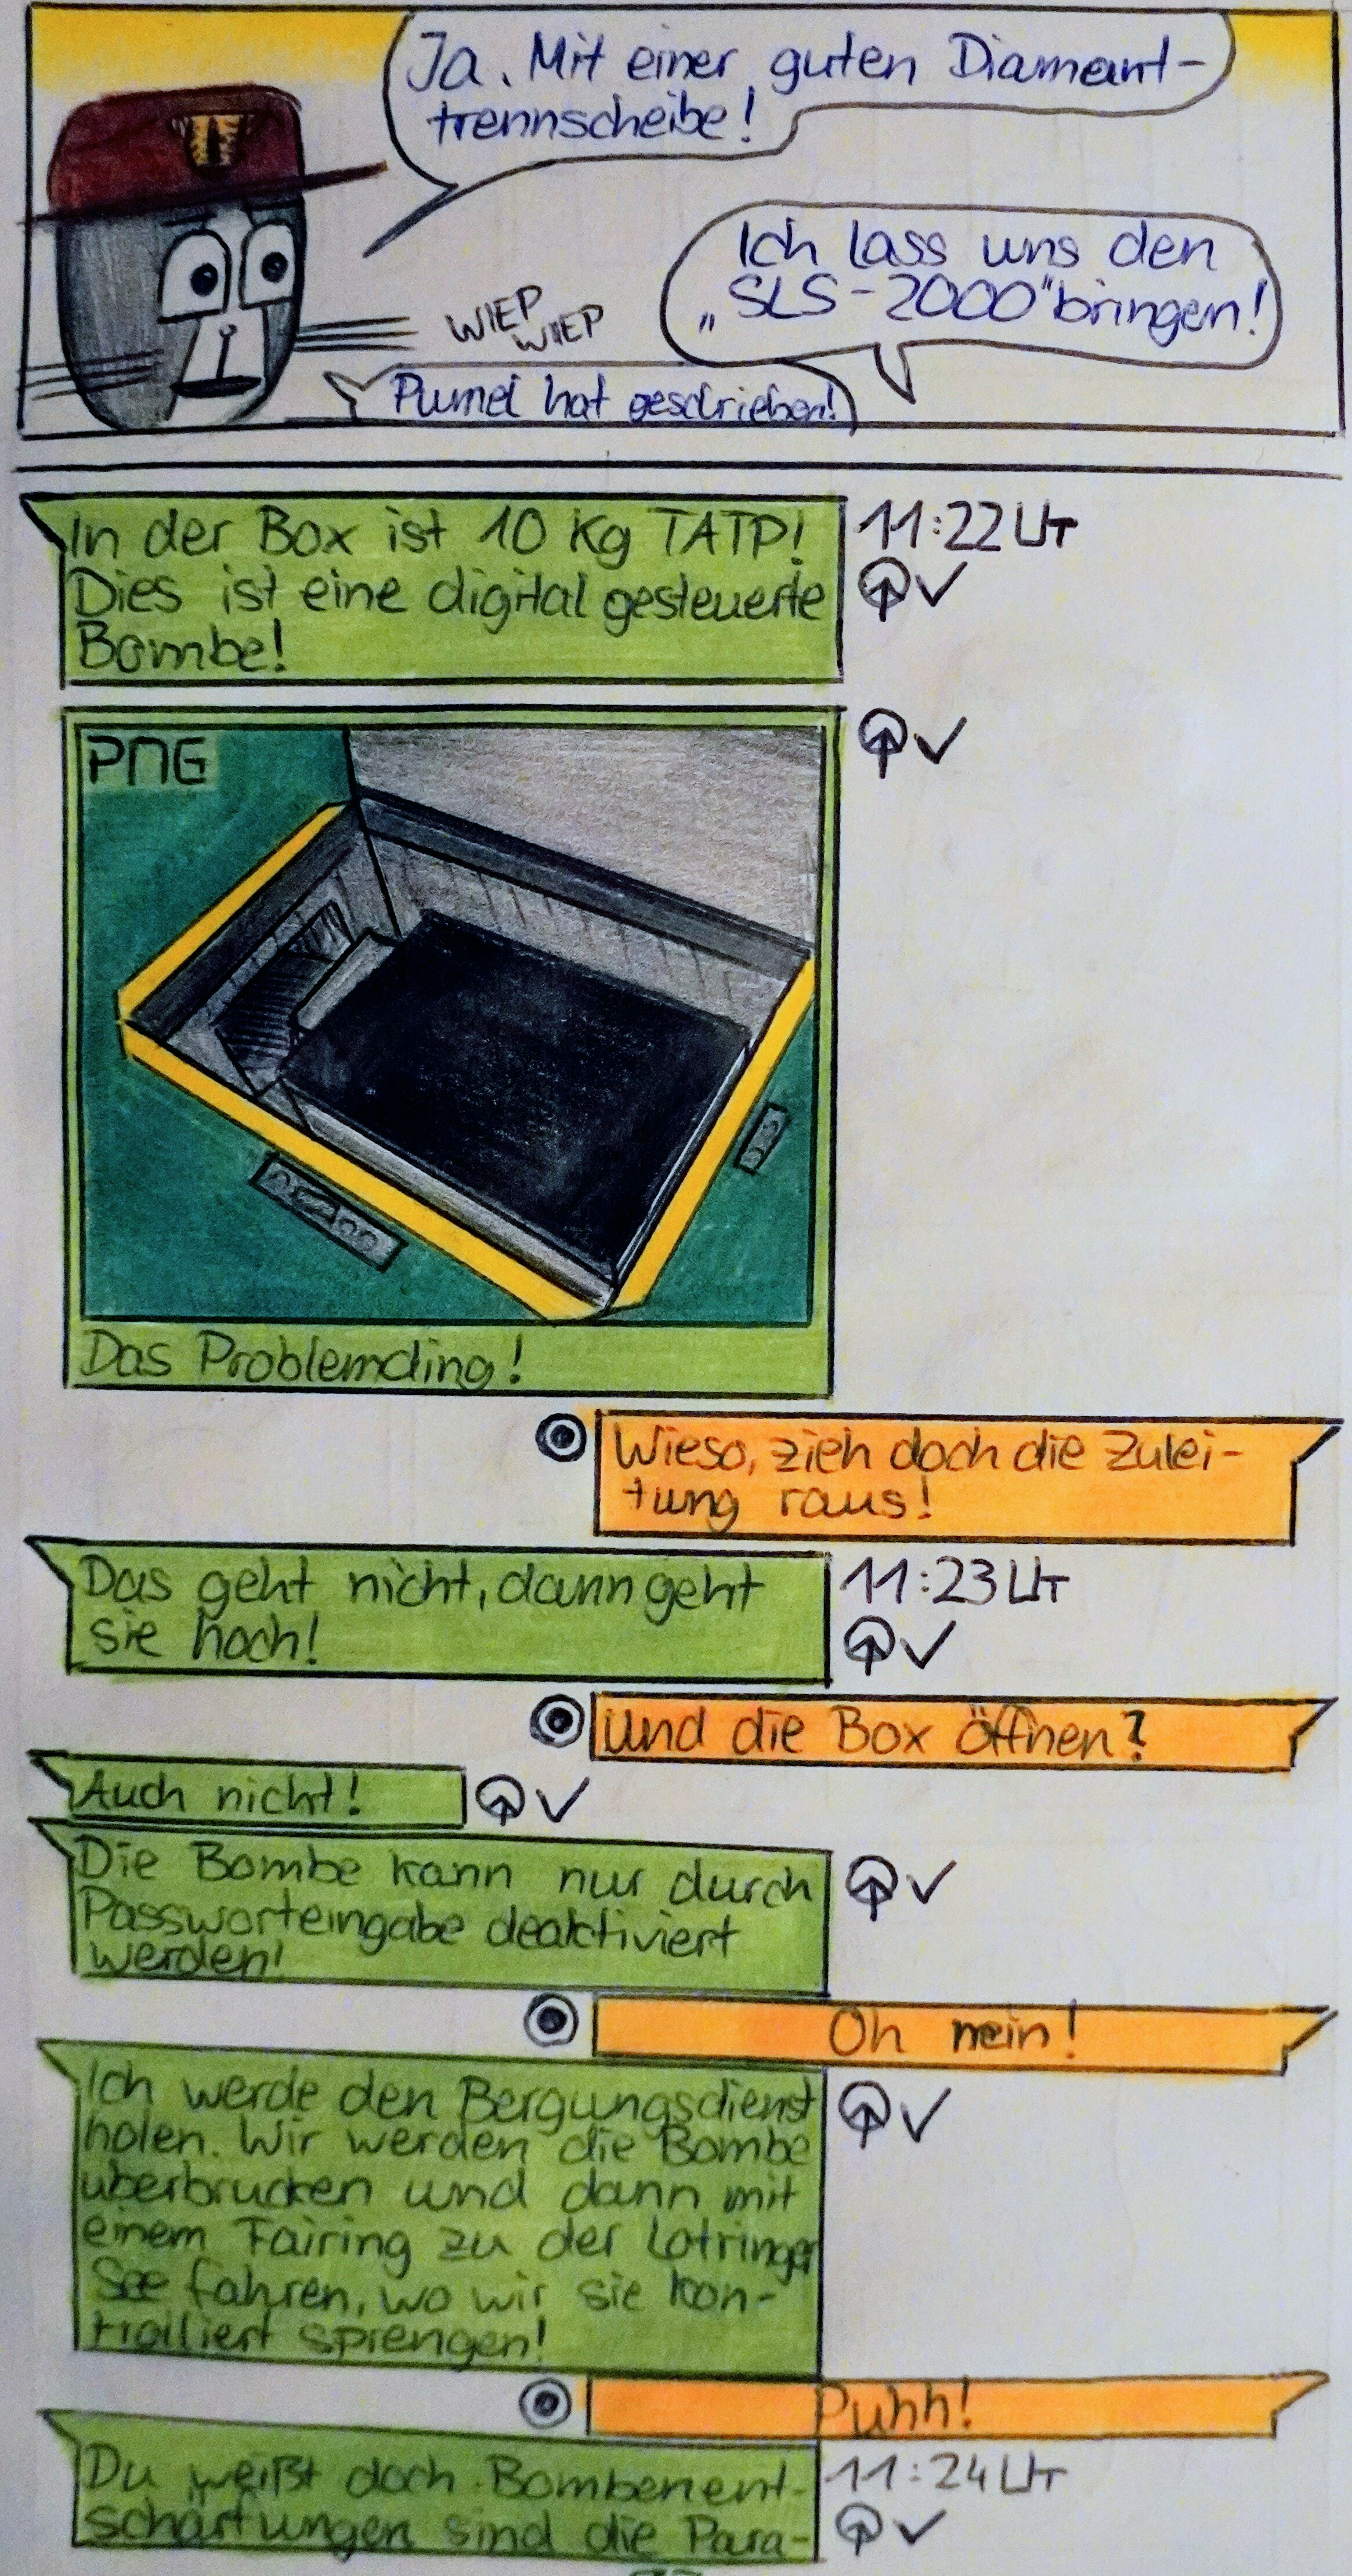 Ja. Mit einer guten Diamant-
trennscheibe!
Ich lass uns den
„SLS-2000" bringen!
WIEP
WIEP
Pumel hat geschrieben!
In der Box ist 10 Kg TATP!
Dies ist eine digital gesteuerte
Bombe!
11:22 UT
PNG
Das Problemding!
Wieso, zieh doch die Zulei-
tung raus!
Das geht nicht, dann geht
sie hoch!
11:23 UT
Und die Box öffnen?
Auch nicht!
Die Bombe kann nur durch
Passworteingabe deaktiviert
werden!
Oh nein!
Ich werde den Bergungsdienst
holen. Wir werden die Bombe
überbrücken und dann mit
einem Fairing zu der Lotringer
See fahren, wo wir sie kon-
trolliert sprengen!
Puhh!
Du weißt doch Bombenent-
schärfungen sind die Para-
11:24 UT